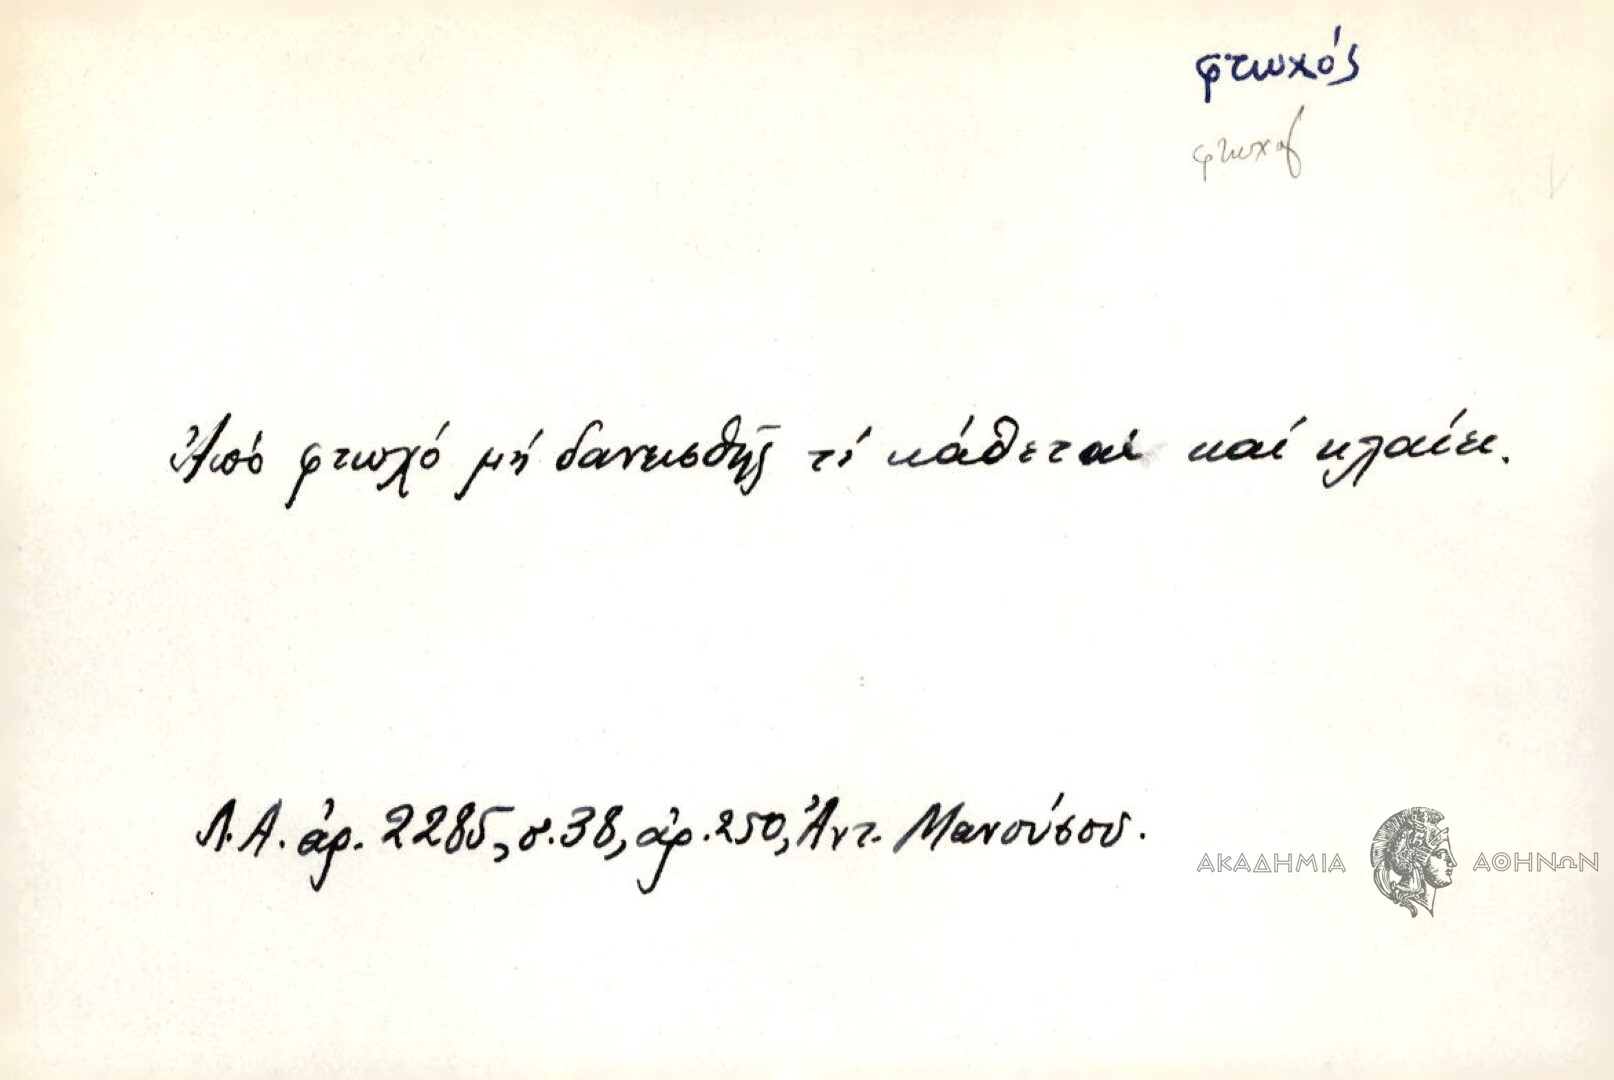 φτωχός
φτωχός
Ἀπό φτωχό μή δανεισθῆς τί κάθεται καί κλαίει.
Λ.Α. ἀρ. 2285, σ. 38, ἀρ. 250, Ἀντ. Μανούσου.
ΑΚΑΔΗΜΙΑ ΑΘΗΝΩΝ